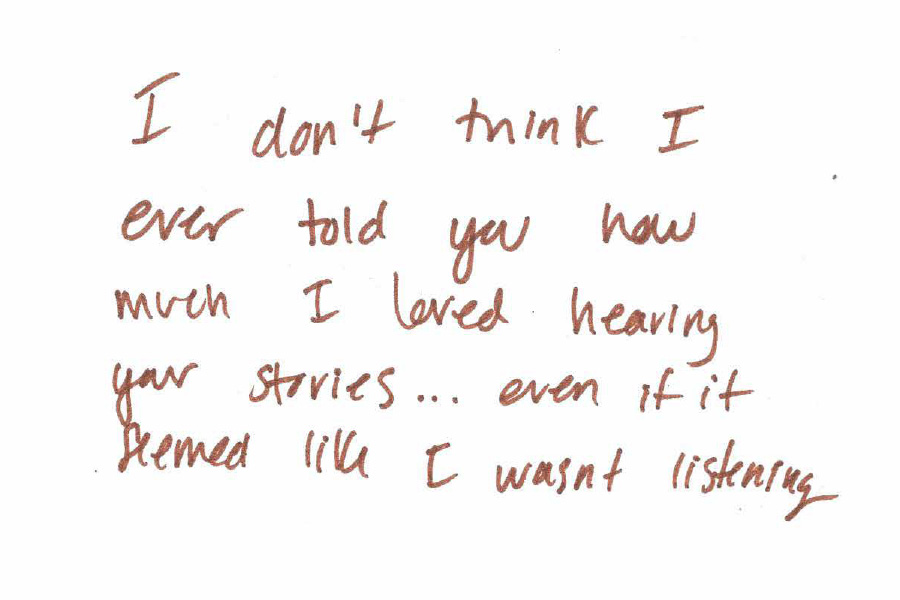 I don't think I
ever told you how
much I loved hearing
your stories... even if it
seemed like I wasnt listening